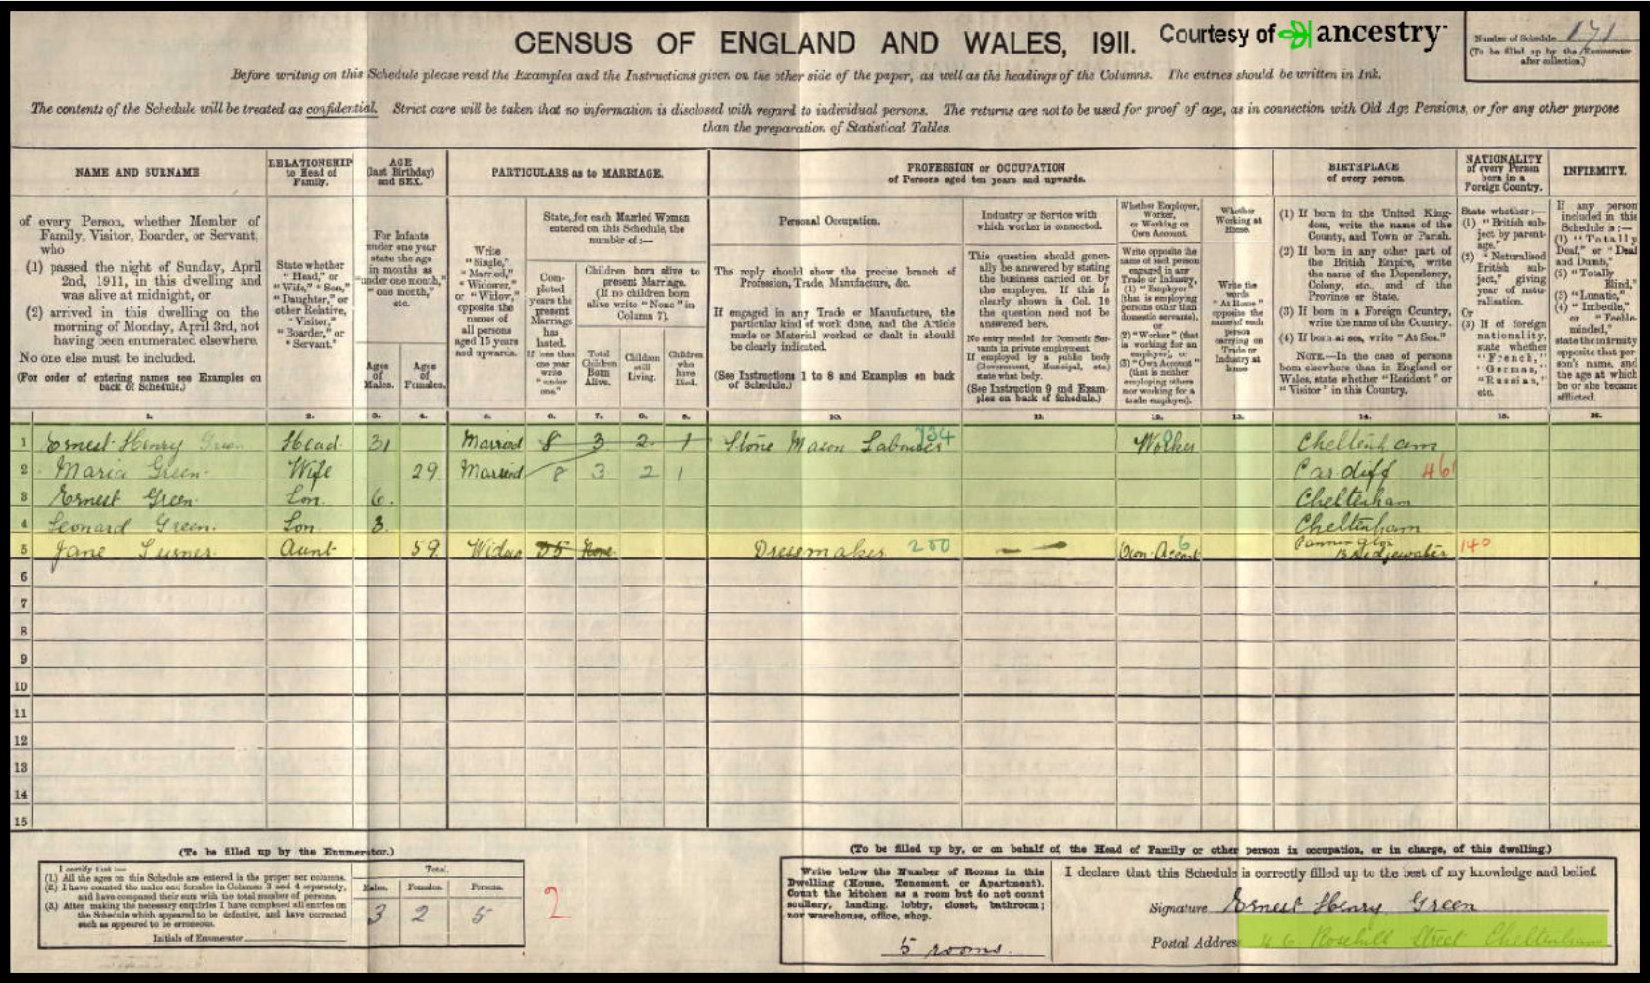 CENSUS OF ENGLAND AND WALES, 1911.
Courtesy of ancestry
Number of Schedule 171
(To be filled up by the Enumerator
after collection.)
Before writing on this Schedule please read the Examples and the Instructions given on the other side of the paper, as well as the headings of the Columns. The entries should be written in Ink.
The contents of the Schedule will be treated as confidential. Strict care will be taken that no information is disclosed with regard to individual persons. The returns are not to be used for proof of age, as in connection with Old Age Pensions, or for any other purpose
than the preparation of Statistical Tables.
NAME AND SURNAME
of every Person, whether Member of
Family, Visitor, Boarder, or Servant,
who
(1) passed the night of Sunday, April
2nd, 1911, in this dwelling and
was alive at midnight, or
(2) arrived in this dwelling on the
morning of Monday, April 3rd, not
having been enumerated elsewhere.
No one else must be included.
(For order of entering names see Examples on
back of Schedule.)
RELATIONSHIP
to Head of
Family.
State whether
"Head," or
"Wife," "Son,"
"Daughter," or
other Relative,
"Visitor,"
"Boarder," or
"Servant."
AGE
(last Birthday)
and SEX.
For Infants
under one year
state the age
in months as
"under one month,"
"one month,"
etc.
Ages
of
Males.
Ages
of
Females.
PARTICULARS as to MARRIAGE.
Write
"Single,"
"Married,"
"Widower,"
or "Widow,"
opposite the
names of
all persons
aged 15 years
and upwards.
State, for each Married Woman
entered on this Schedule, the
number of:—
Completed
years the
present
Marriage
has
lasted.
If less than
one year
write
"under
one."
Children born alive to
present Marriage.
(If no children born
alive write "None" in
Column 7).
Total
Children
Born
Alive.
Children
still
Living.
Children
who
have
Died.
PROFESSION or OCCUPATION
of Persons aged ten years and upwards.
Personal Occupation.
The reply should show the precise branch of
Profession, Trade, Manufacture, &c.
If engaged in any Trade or Manufacture, the
particular kind of work done, and the Article
made or Material worked or dealt in should
be clearly indicated.
(See Instructions 1 to 8 and Examples on back
of Schedule.)
Industry or Service with
which worker is connected.
This question should gener-
ally be answered by stating
the business carried on by
the employer. If this is
clearly shown in Col. 10
the question need not be
answered here.
No entry needed for Domestic Ser-
vants in private employment.
If employed by a public body
(Government, Municipal, etc.)
state what body.
(See Instruction 9 and Exam-
ples on back of Schedule.)
Whether Employer,
Worker,
or Working on
Own Account.
Write opposite the
name of each person
engaged in any
Trade or Industry,
(1) "Employer"
(that is employing
persons other than
domestic servants),
or
(2) "Worker" (that
is working for an
employer), or
(3) "Own Account"
(that is neither
employing others
nor working for a
trade employer).
Whether
Working at
Home.
Write the
words
"At Home"
opposite the
name of each
person
carrying on
Trade or
Industry at
home
BIRTHPLACE
of every person.
(1) If born in the United King-
dom, write the name of the
County, and Town or Parish.
(2) If born in any other part of
the British Empire, write
the name of the Dependency,
Colony, etc., and of the
Province or State.
(3) If born in a Foreign Country,
write the name of the Country.
(4) If born at sea, write "At Sea."
NOTE.—In the case of persons
born elsewhere than in England or
Wales, state whether "Resident" or
"Visitor" in this Country.
NATIONALITY
of every Person
born in a
Foreign Country.
State whether:—
(1) "British sub-
ject by parent-
age."
(2) "Naturalised
British sub-
ject," giving
year of natu-
ralisation.
Or
(3) If of foreign
nationality,
state whether
"French,"
"German,"
"Russian,"
etc.
INFIRMITY.
If any person
included in this
Schedule is:—
(1) "Totally
Deaf," or "Deaf
and Dumb,"
(2) "Totally
Blind,"
(3) "Lunatic,"
(4) "Imbecile,"
or "Feeble-
minded,"
state the infirmity
opposite that per-
son's name, and
the age at which
he or she became
afflicted.
1. 2. 3. 4. 5. 6. 7. 8. 9. 10. 11. 12. 13. 14. 15. 16.
1 Ernest Henry Green Head 31 Married 8 3 2 1 Stone Mason Labourer 734 Worker Cheltenham
2 Maria Green Wife 29 Married 8 3 2 1 Cardiff 461
3 Ernest Green Son 6. Cheltenham
4 Leonard Green. Son 3. Cheltenham
5 Jane Turner Aunt 59 Widow 35 None Dressmaker 200 Own Account 6 Cannington Bridgewater 140
6
7
8
9
10
11
12
13
14
15
(To be filled up by the Enumerator.)
I certify that:—
(1.) All the ages on this Schedule are entered in the proper sex columns.
(2.) I have counted the males and females in Columns 3 and 4 separately,
and have compared their sum with the total number of persons.
(3.) After making the necessary enquiries I have completed all entries on
the Schedule which appeared to be defective, and have corrected
such as appeared to be erroneous.
Initials of Enumerator
Total.
Males. Females. Persons.
3 2 5
2
(To be filled up by, or on behalf of, the Head of Family or other person in occupation, or in charge, of this dwelling.)
Write below the Number of Rooms in this
Dwelling (House, Tenement, or Apartment).
Count the kitchen as a room but do not count
scullery, landing, lobby, closet, bathroom;
nor warehouse, office, shop.
5 rooms.
I declare that this Schedule is correctly filled up to the best of my knowledge and belief.
Signature Ernest Henry Green
Postal Address 46 Rosehill Street Cheltenham